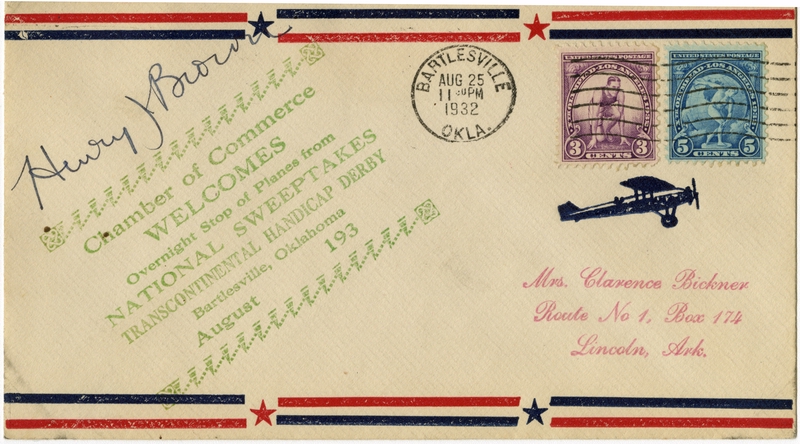 Henry J Brown
BARTLESVILLE
AUG 25
11 30 PM
1932
OKLA.
UNITED STATES POSTAGE
3 CENTS 3
UNITED STATES POSTAGE
5 CENTS 5
Chamber of Commerce
WELCOMES
Overnight Stop of Planes from
NATIONAL SWEEPTAKES
TRANSCONTINENTAL HANDICAP DERBY
Bartlesville, Oklahoma
August 193
Mrs. Clarence Bickner
Route No 1, Box 174
Lincoln, Ark.